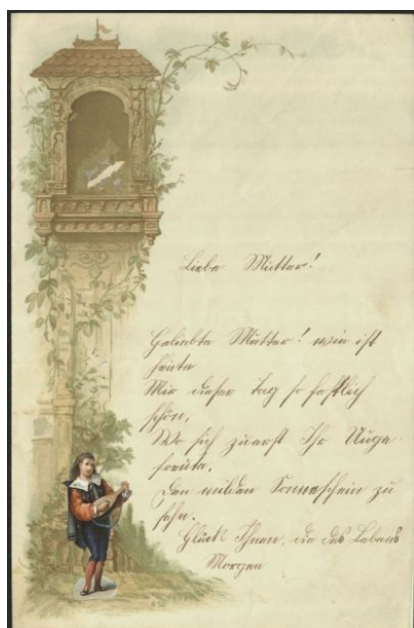 Liebe Mutter!
Geliebte Mutter! wie ist
heute
Mir dieser Tag so festlich
schön,
Wo sich zuerst Ihr Auge
freute,
Den milden Sonneschein zu
sehn.
Glück Ihnen, die des Lebens
Morgen